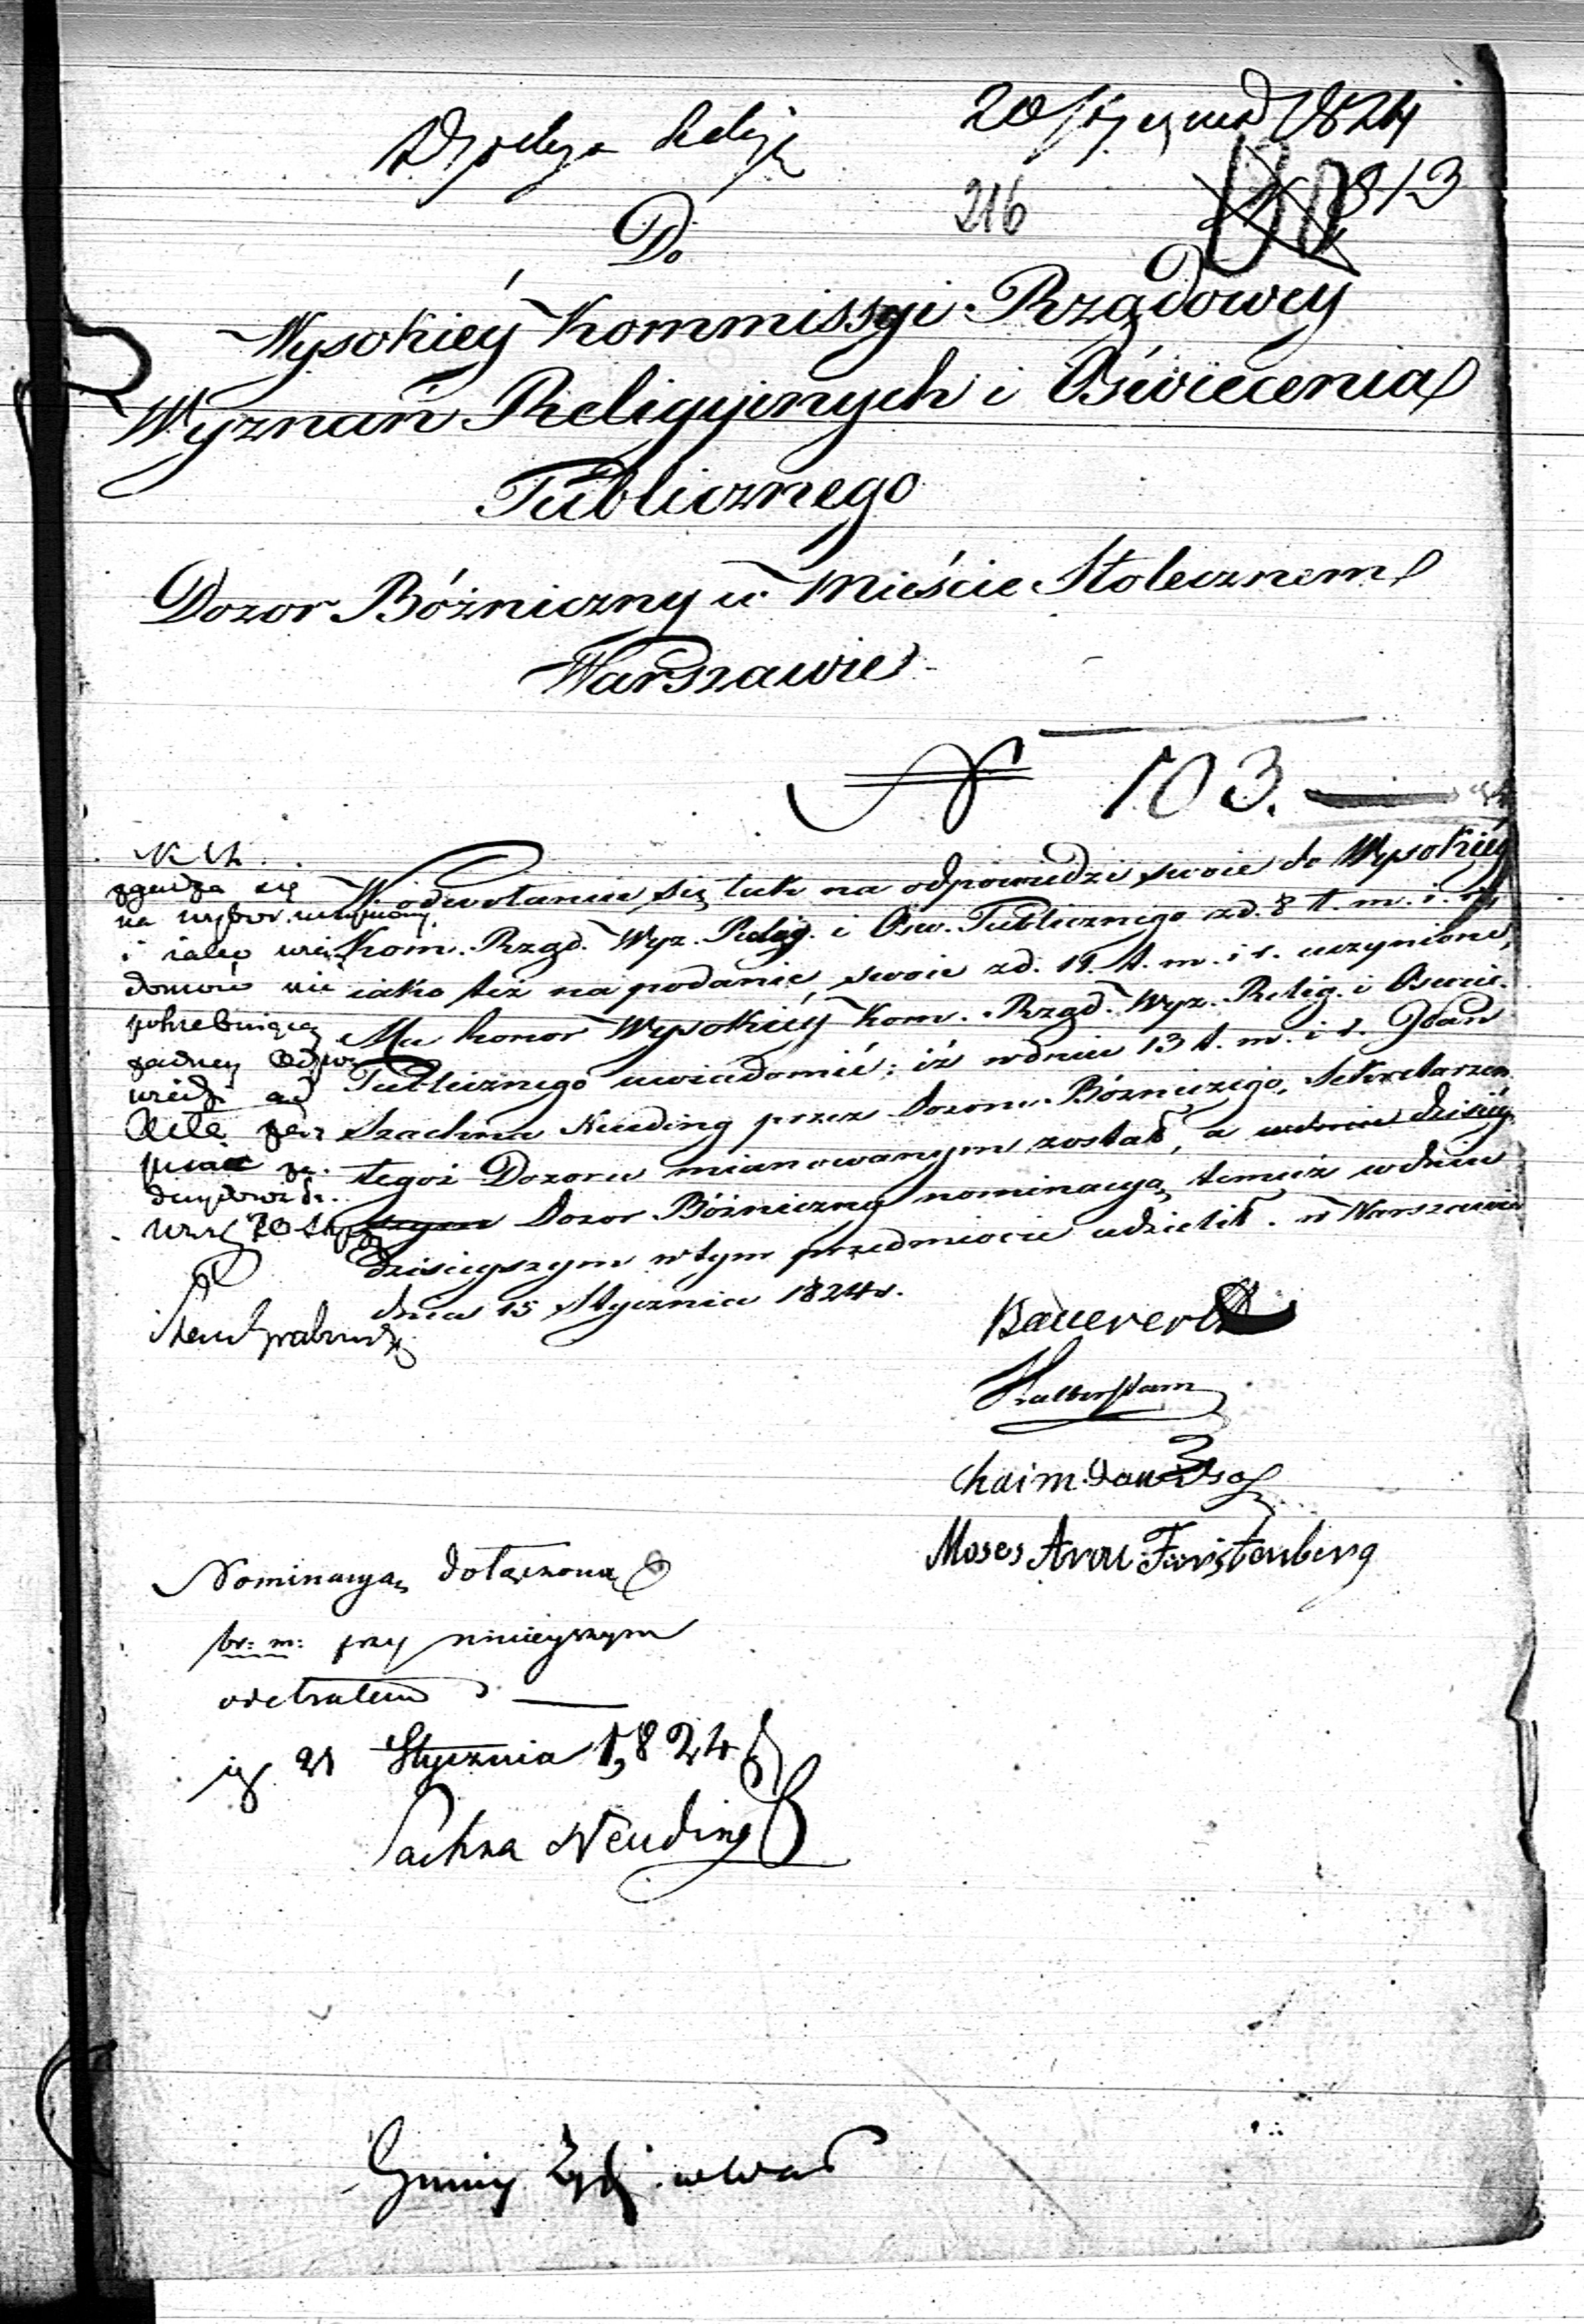 20 Stycznia 1824
216
813
Do
Wysokiey Kommissyi Rządowey
Wyznań Religyinych i Oświecenia
Publicznego
Dozor Bóżniczny w Mieście Stolecznem
Warszawie
N 103.
W odwołaniu się tak na odpowiedzi swoie do Wysokiey
Kom. Rząd. Wyz. Relig. i Ośw. Publicznego zd. 8 t. m. i r.
iako też na podanie swoie zd. 11. t. m. i r. uczynione,
Ma honor Wysokiey Kom. Rząd. Wyz. Relig. i Oswie.
Publicznego uwiadomić; iż wdniu 13 t. m. i r. JPan
Szachna Neuding przez Dozor Bózniczego, Sekretarzem
tegoż Dozoru mianowanym został, a wdniu dzisiey
szym Dozor Bóżniczny nominacyą temuż wdniu
dzisieyszym wtym przedmiocie udzielił. w Warszawie
dnia 15 Stycznia 1824 r.
zgadza się
na wybor
i iako
domość nie
potrzebuiącą
żadney Odpo
wiedzi ad
Acta
Bauerertz
Halberstam
Chaim Davidsohn
Moses Aron Fürstenberg
Nominacyą dołączoną
br: m: przy ninieyszym
odebrałem
21 Stycznia 1824
Sachna Neuding
Gminy Żyd. w War